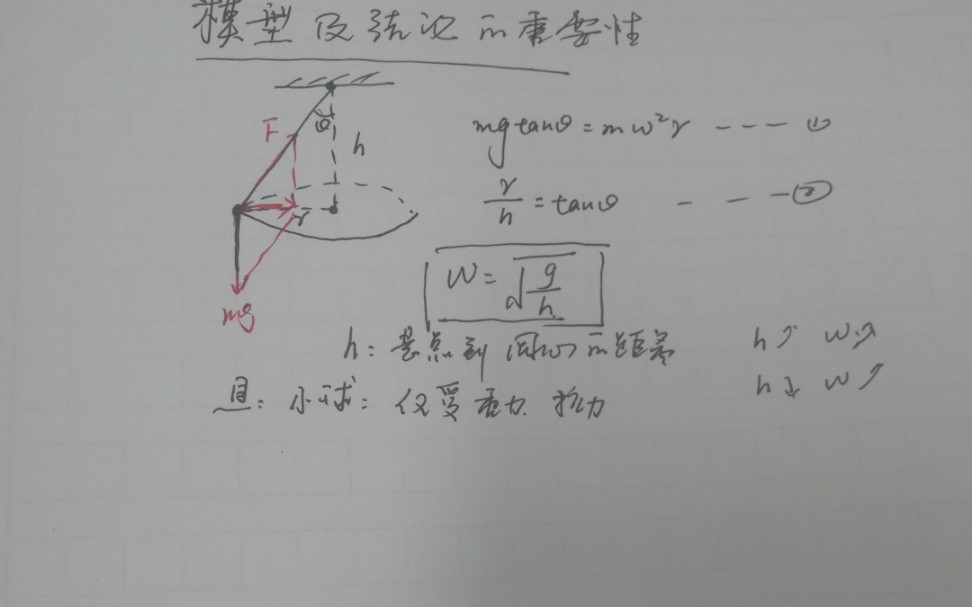 模型及结论的重要性
F
θ
h
r
mg
mg tanθ = mω²r ---- ①
r/h = tanθ - - - ②
ω = √(g/h)
h: 悬点到圆心的距离
h↑ ω↘
h↓ ω↗
且: 小球: 仅受重力、拉力